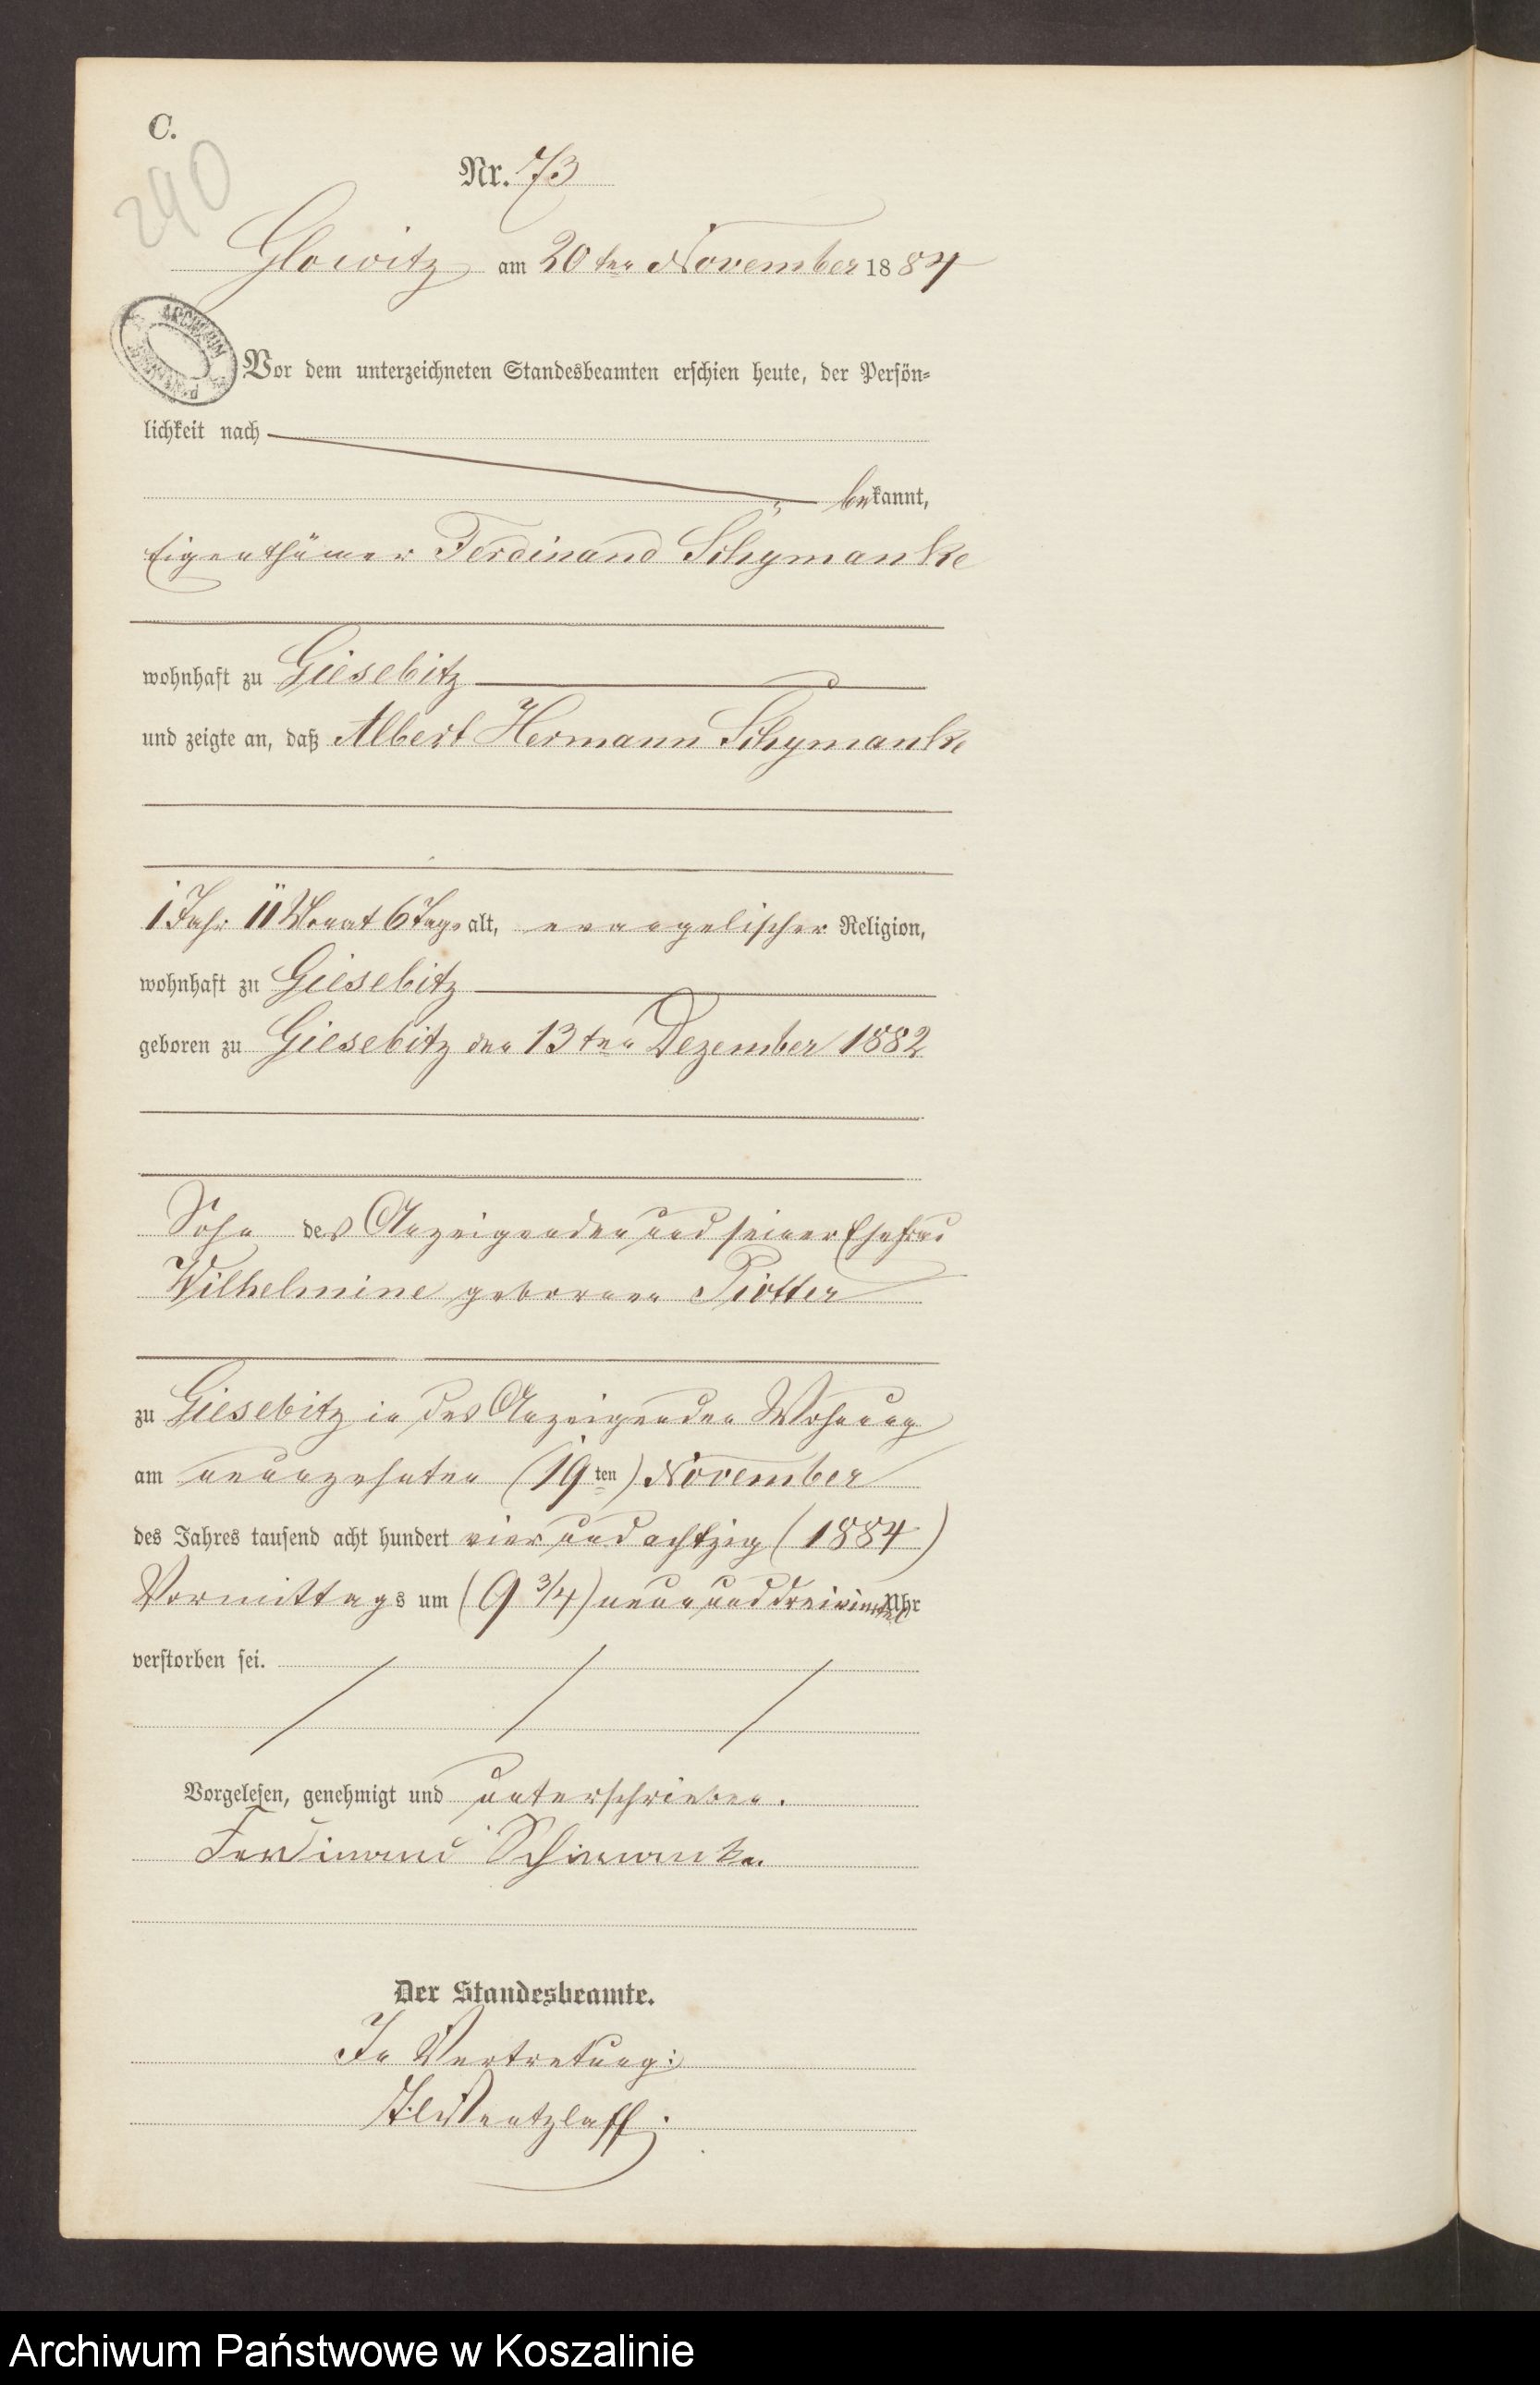 C.
290
Nr. 73
Glowitz am 20ten November 1884
ARCHIWUM
Vor dem unterzeichneten Standesbeamten erschien heute, der Persön-
lichkeit nach
bekannt,
Eigenthümer Ferdinand Schymanke
wohnhaft zu Giesebitz
und zeigte an, daß Albert Hermann Schymanke
1 Jahr 11 Monat 6 Tage alt, evangelischer Religion,
wohnhaft zu Giesebitz
geboren zu Giesebitz den 13ten Dezember 1882
Sohn des Anzeigenden und seiner Ehefrau
Wilhelmine geborenen Piotter
zu Giesebitz in des Anzeigenden Wohnung
am neunzehnten (19ten) November
des Jahres tausend acht hundert vier und achtzig (1884)
Vormittags um (9 3/4) neun und dreiviertel Uhr
verstorben sei.
Vorgelesen, genehmigt und unterschrieben.
Ferdinand Schimanke.
Der Standesbeamte.
In Vertretung:
Wentzlaff.
Archiwum Państwowe w Koszalinie